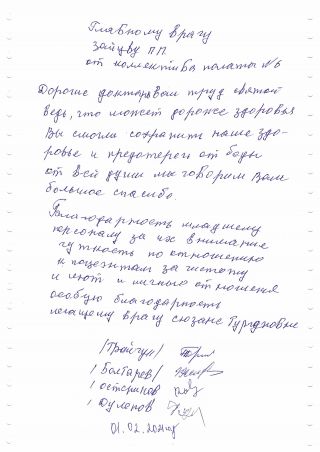 Главному врачу
Зайцву П.П.
от коллектива палаты №6
Дорогие доктора вам труд святой
ведь, что может дороже здоровья
Вы смогли сохранить наше здо-
ровье и предотереги от беды
от всей души мы говорим Вам
большое спасибо
Благодарность младшему
персоналу за их внимание
чуткость по отношению
к пациентам за чистоту
и уют и личное отношения
особую благодарность
лечащему врачу Сюзане
/Тройгун/
/Болтарев/
/Остснинов
/Дулепов
01.02.